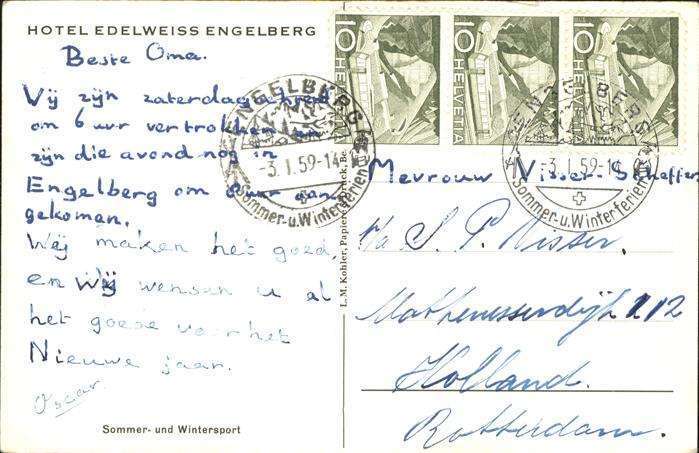 HOTEL EDELWEISS ENGELBERG
Beste Oma.
Vij zijn zaterdag
om 6 uur vertrokken en
zijn die avond nog in
Engelberg om uur aan
gekomen.
Wij maken het goed,
en Wij wensen u al
het goede voor het
Nieuwe jaar.
Oscar
Sommer- und Wintersport
L. M. Kohler, Papiere
10 HELVETIA
10 HELVETIA
10 HELVETIA
ENGELBERG
-3.I.59-14
Sommer-u.Winterferien
ENGELBERG
-3.I.59-14
Sommer-u.Winterferien
Mevrouw Visser-Scheffer
p/a S. P. Visser.
Mathenesserdijk 112
Holland.
Rotterdam.